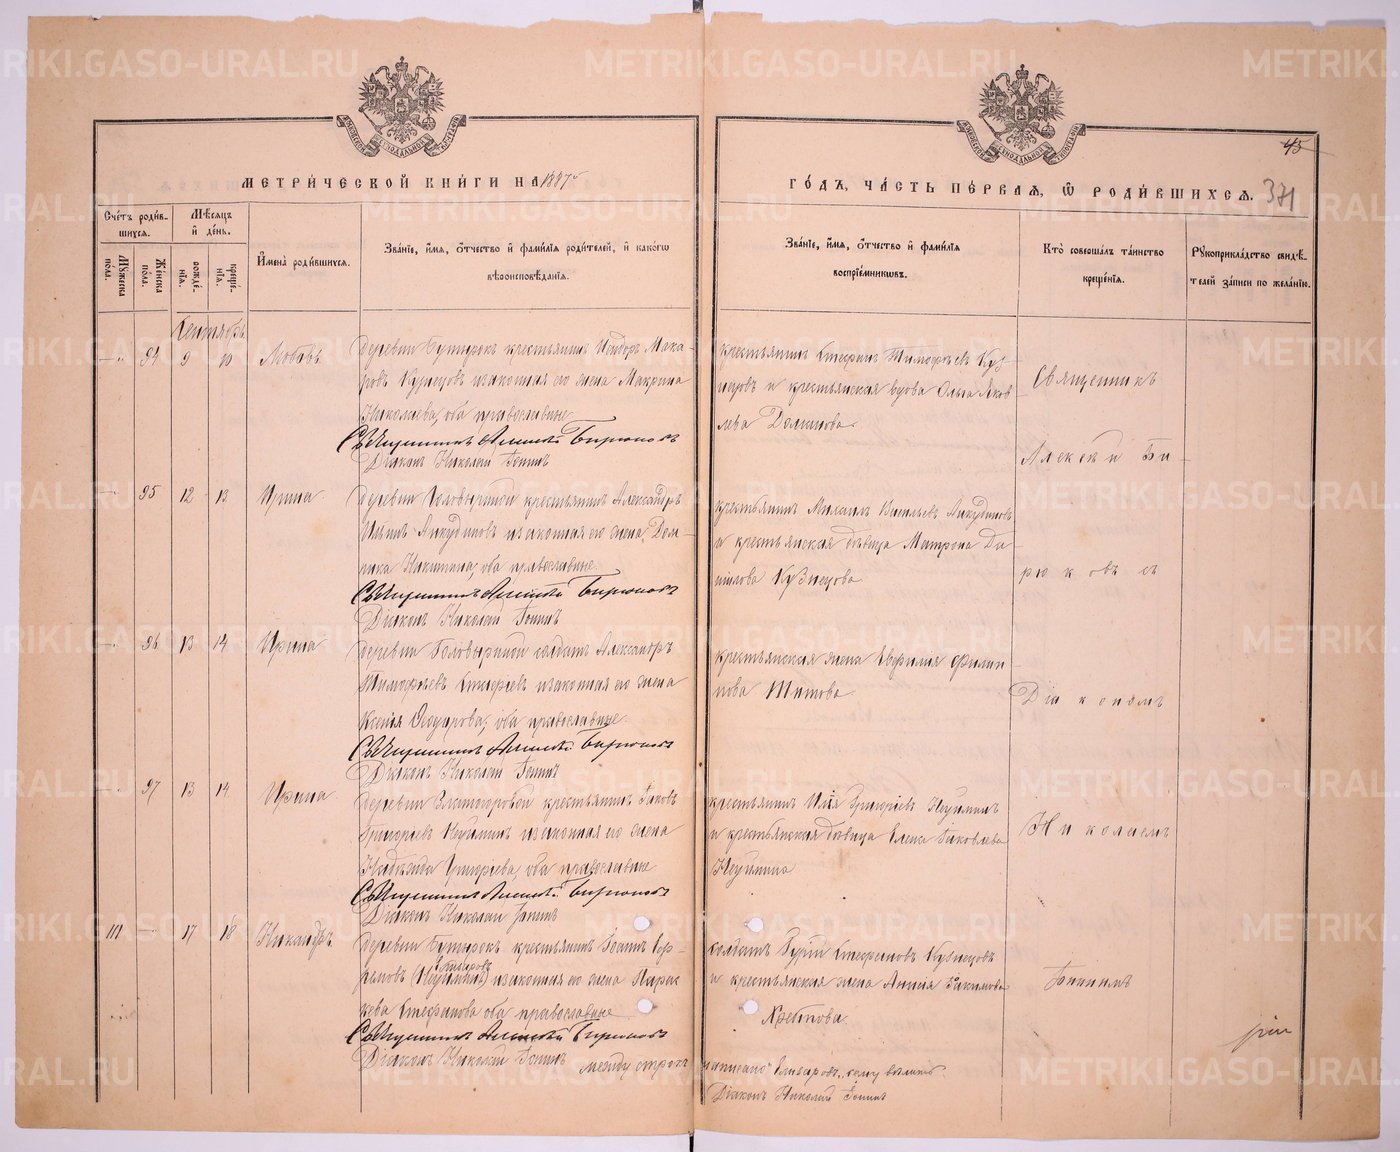 МЕТРИ́ЧЕСКОЙ КНИ́ГИ НА 1887
ГО́ДЪ, ЧА́СТЬ ПЕ́РВАЯ, Ѡ РОДИ́ВШИХСЯ.
45
371
Сче́тъ роди́в-
шихся.
Мѣ́сяцъ
и҆ де́нь.
Мꙋжеска по́ла.
Же́нска по́ла.
рожде́-
нїѧ.
креще́-
нїѧ.
И҆мена̀ роди́вшихся.
Зва́нїе, и҆́мѧ, ѻ҆́тчество и҆ фами́лїѧ роди́телей, и҆ како́гѡ
вѣроисповѣ́данїѧ.
Зва́нїе, и҆́мѧ, ѻ҆́тчество и҆ фами́лїѧ
воспрїе́мникѡвъ.
Кто̀ соверша́лъ та́инство
креще́нїѧ.
Рꙋкоприкла́дство свидѣ́-
телей за́писи по жела́нїю.
Сентябрь
94 9 10 Любовь
деревни Бутырокъ крестьянинъ Исидоръ Мака-
ровъ Кузнецовъ и законная его жена Макрина
Николаева, оба православные
Священникъ Алексѣй Бирюковъ
Діаконъ Николай Іонинъ
крестьянинъ Стефанъ Тимофѣевъ Куз-
нецовъ и крестьянская вдова Ольга Яков
лева Долганова
Священникъ
Алексѣй Би-
95 12 13 Ирина
деревни Головыриной крестьянинъ Александръ
Ильинъ Анкудиновъ и законная его жена Дом-
ника Никитина, оба православные
Священникъ Алексѣй Бирюковъ
Діаконъ Николай Іонинъ
крестьянинъ Михаилъ Васильевъ Анкудиновъ
и крестьянская дѣвица Матрона Да-
нилова Кузнецова
рюковъ съ
96 13 14 Ирина
деревни Головыриной солдатъ Александръ
Тимофѣевъ и законная его жена
Ксенія Ѳеодорова, оба православные
Священникъ Алексѣй Бирюковъ
Діаконъ Николай Іонинъ
крестьянская жена Евфимія Филип-
пова Титова
Діакономъ
97 13 14 Ирина
деревни крестьянинъ Іаковъ
Григорьевъ Неуйминъ и законная его жена
Надежда Григорьева, оба православные
Священникъ Алексѣй Бирюковъ
Діаконъ Николай Іонинъ
крестьянинъ Илія Григоріевъ Неуйминъ
и крестьянская дѣвица Елена Іаковлева
Неуймина
Николаемъ
111 17 18 Никандръ
деревни Бутырокъ крестьянинъ Іоаннъ
(Неуйминъ) и законная его жена Параск
кева Стефанова оба православные
Священникъ Алексѣй Бирюковъ
Діаконъ Николай Іонинъ
солдатъ Гурій Стефановъ Кузнецовъ
и крестьянская жена Анисія Іакимова
Іонинымъ
между строкъ написано
Діаконъ Николай Іонинъ
METRIKI.GASO-URAL.RU